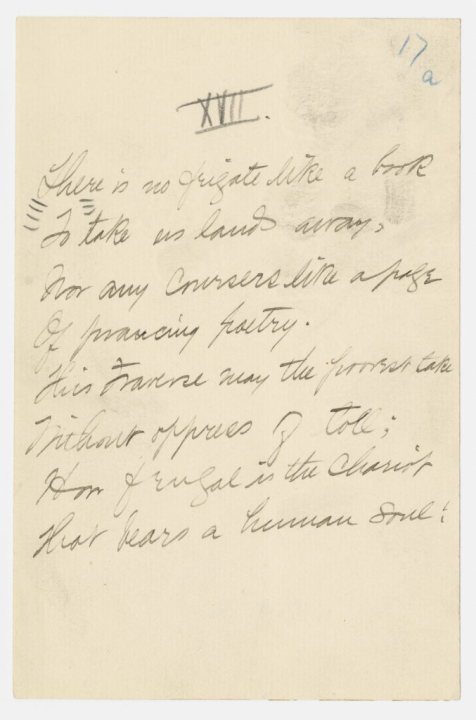 17
a
XVII.
There is no frigate like a book
To take us lands away,
Nor any coursers like a page
Of prancing poetry.
This traverse may the poorest take
Without oppress of toll;
How frugal is the chariot
That bears a human soul!